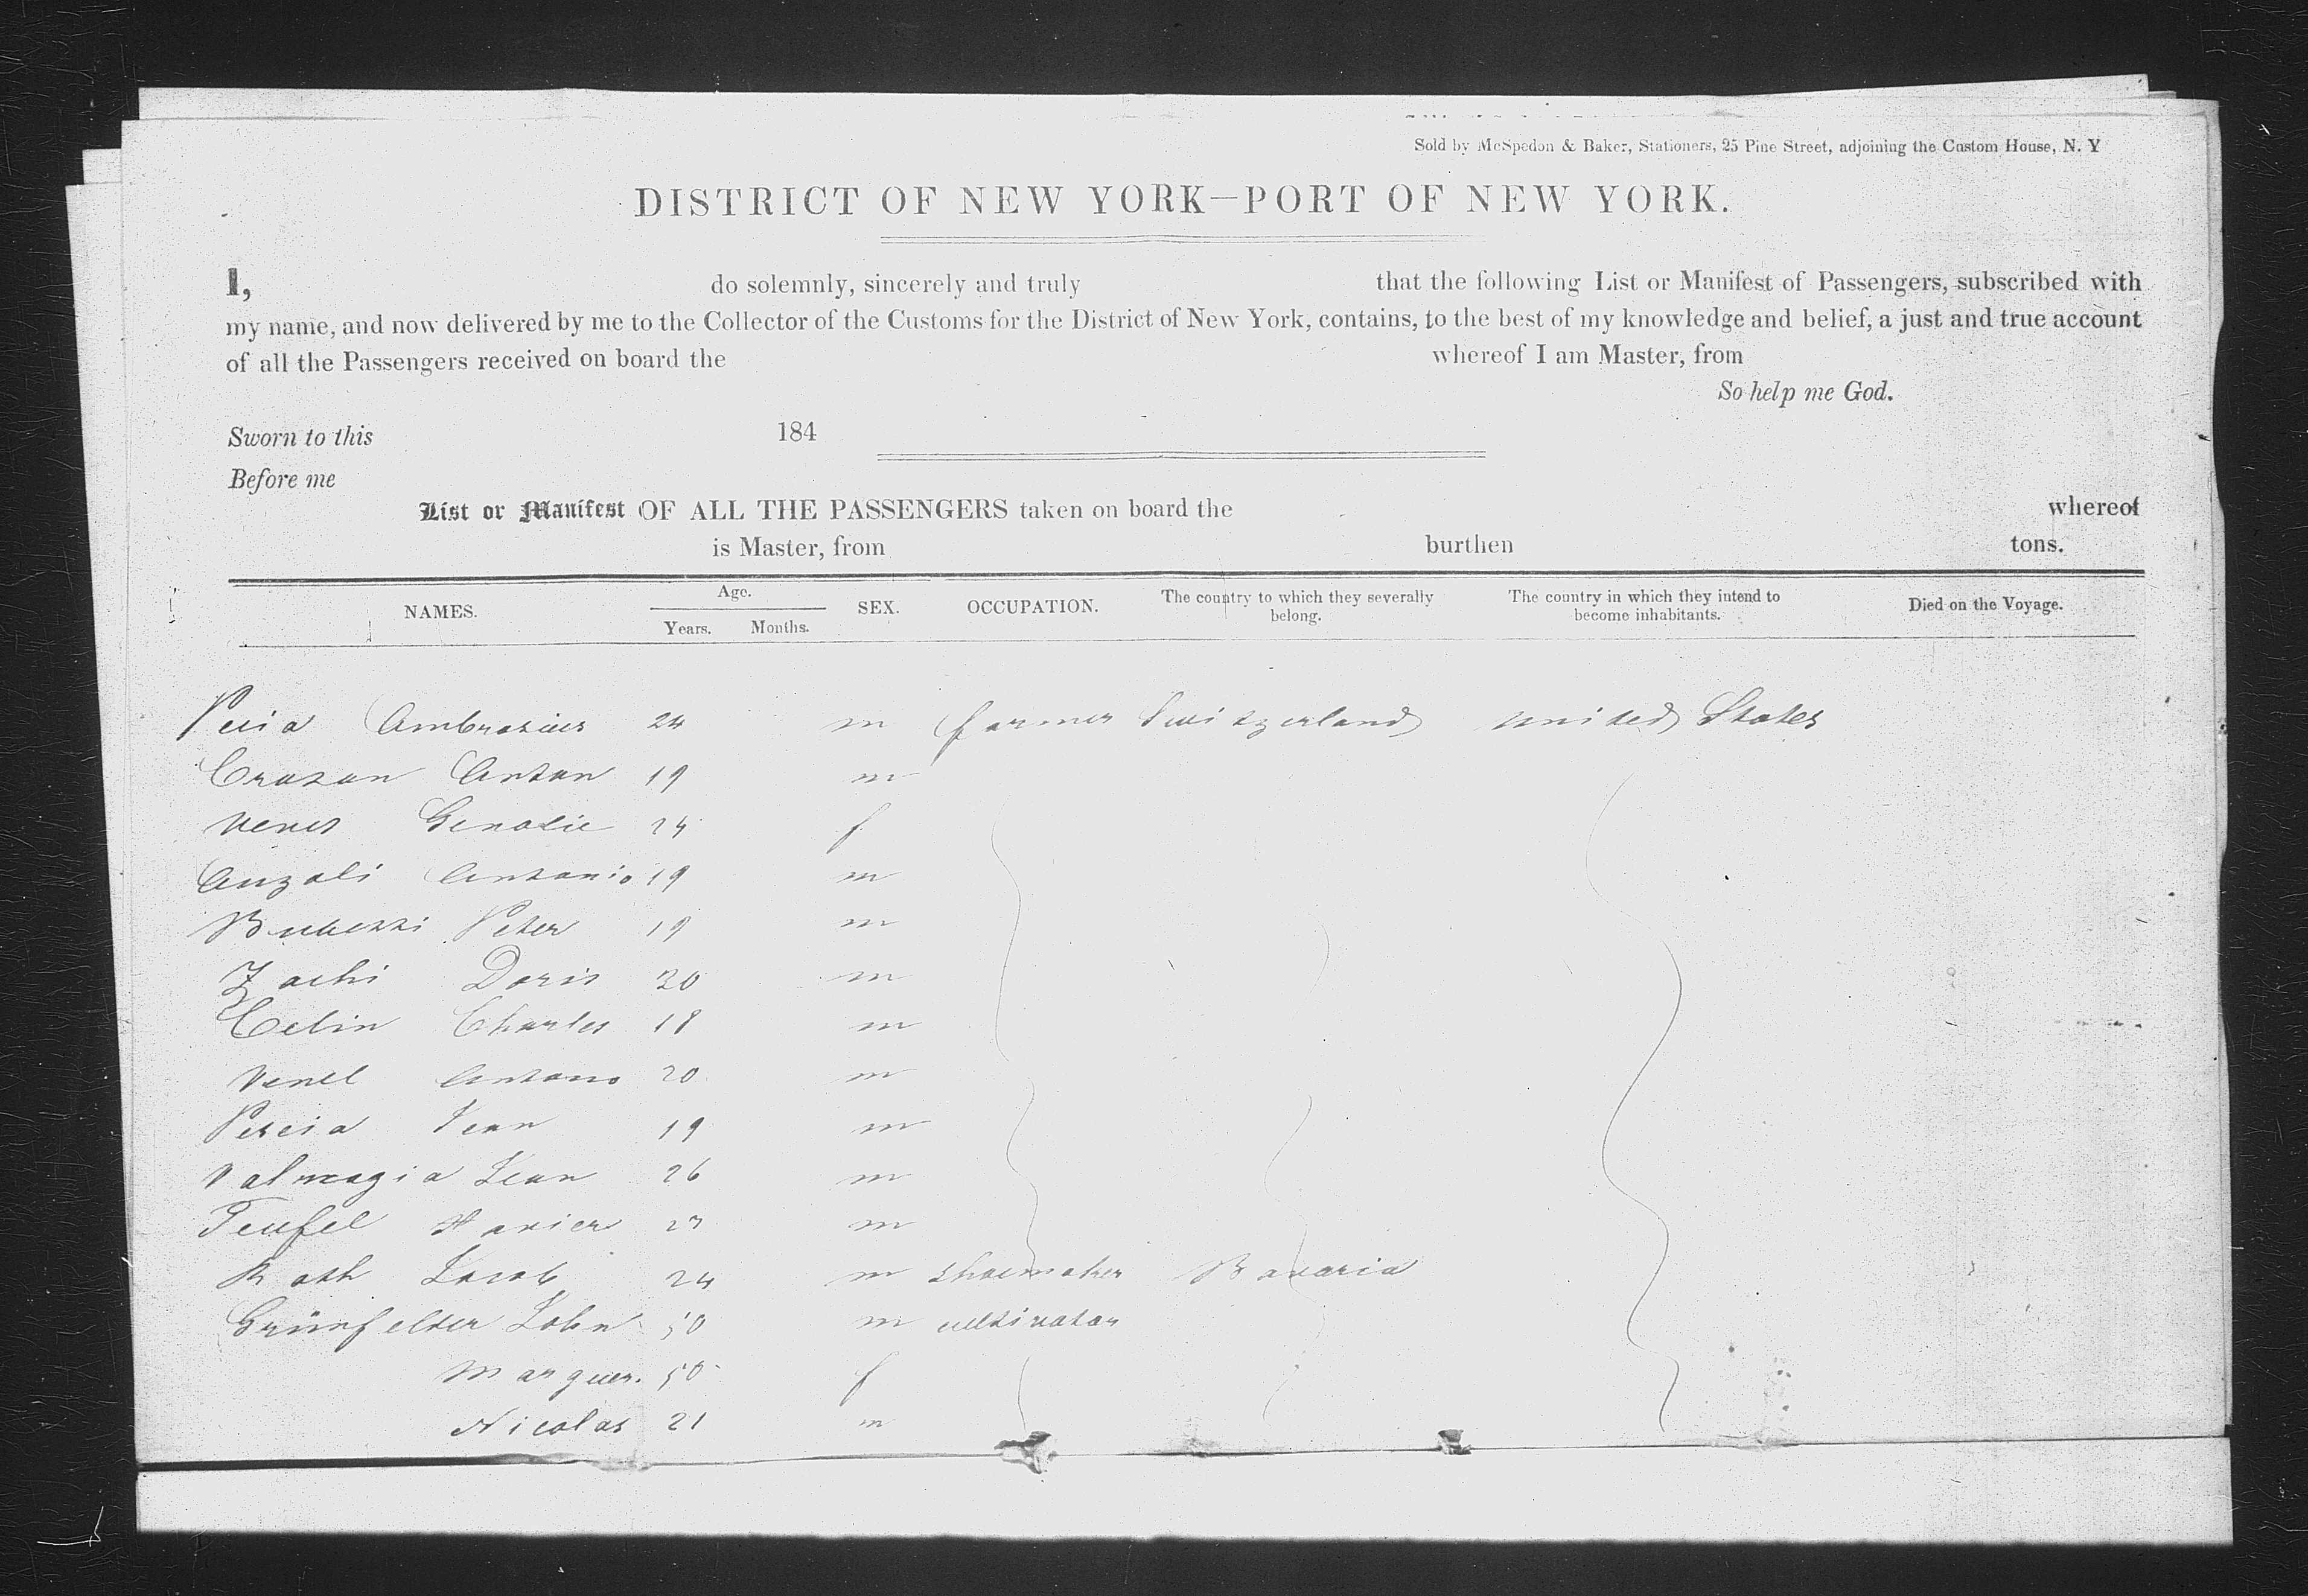 Sold by McSpedon & Baker, Stationers, 25 Pine Street, adjoining the Custom House, N. Y
DISTRICT OF NEW YORK—PORT OF NEW YORK.
I, do solemnly, sincerely and truly that the following List or Manifest of Passengers, subscribed with
my name, and now delivered by me to the Collector of the Customs for the District of New York, contains, to the best of my knowledge and belief, a just and true account
of all the Passengers received on board the whereof I am Master, from
So help me God.
Sworn to this 184
Before me
List or Manifest OF ALL THE PASSENGERS taken on board the whereof
is Master, from burthen tons.
NAMES. Age. Years. Months. SEX. OCCUPATION. The country to which they severally belong. The country in which they intend to become inhabitants. Died on the Voyage.
Ambrosius 24 m farmer Switzerland United States
Anton 19 m
f
Antonio 19 m
Peter 19 m
Zachi Doris m
Celin Charles 18 m
Venel Antono 20 m
19 m
Valmagia Jean 26 m
Teufel Xavier m
Roth Jacob 24 m shoemaker Bavaria
Grünfelder John 50 m cultivator
Marguer. 50 f
Nicolas 21 m